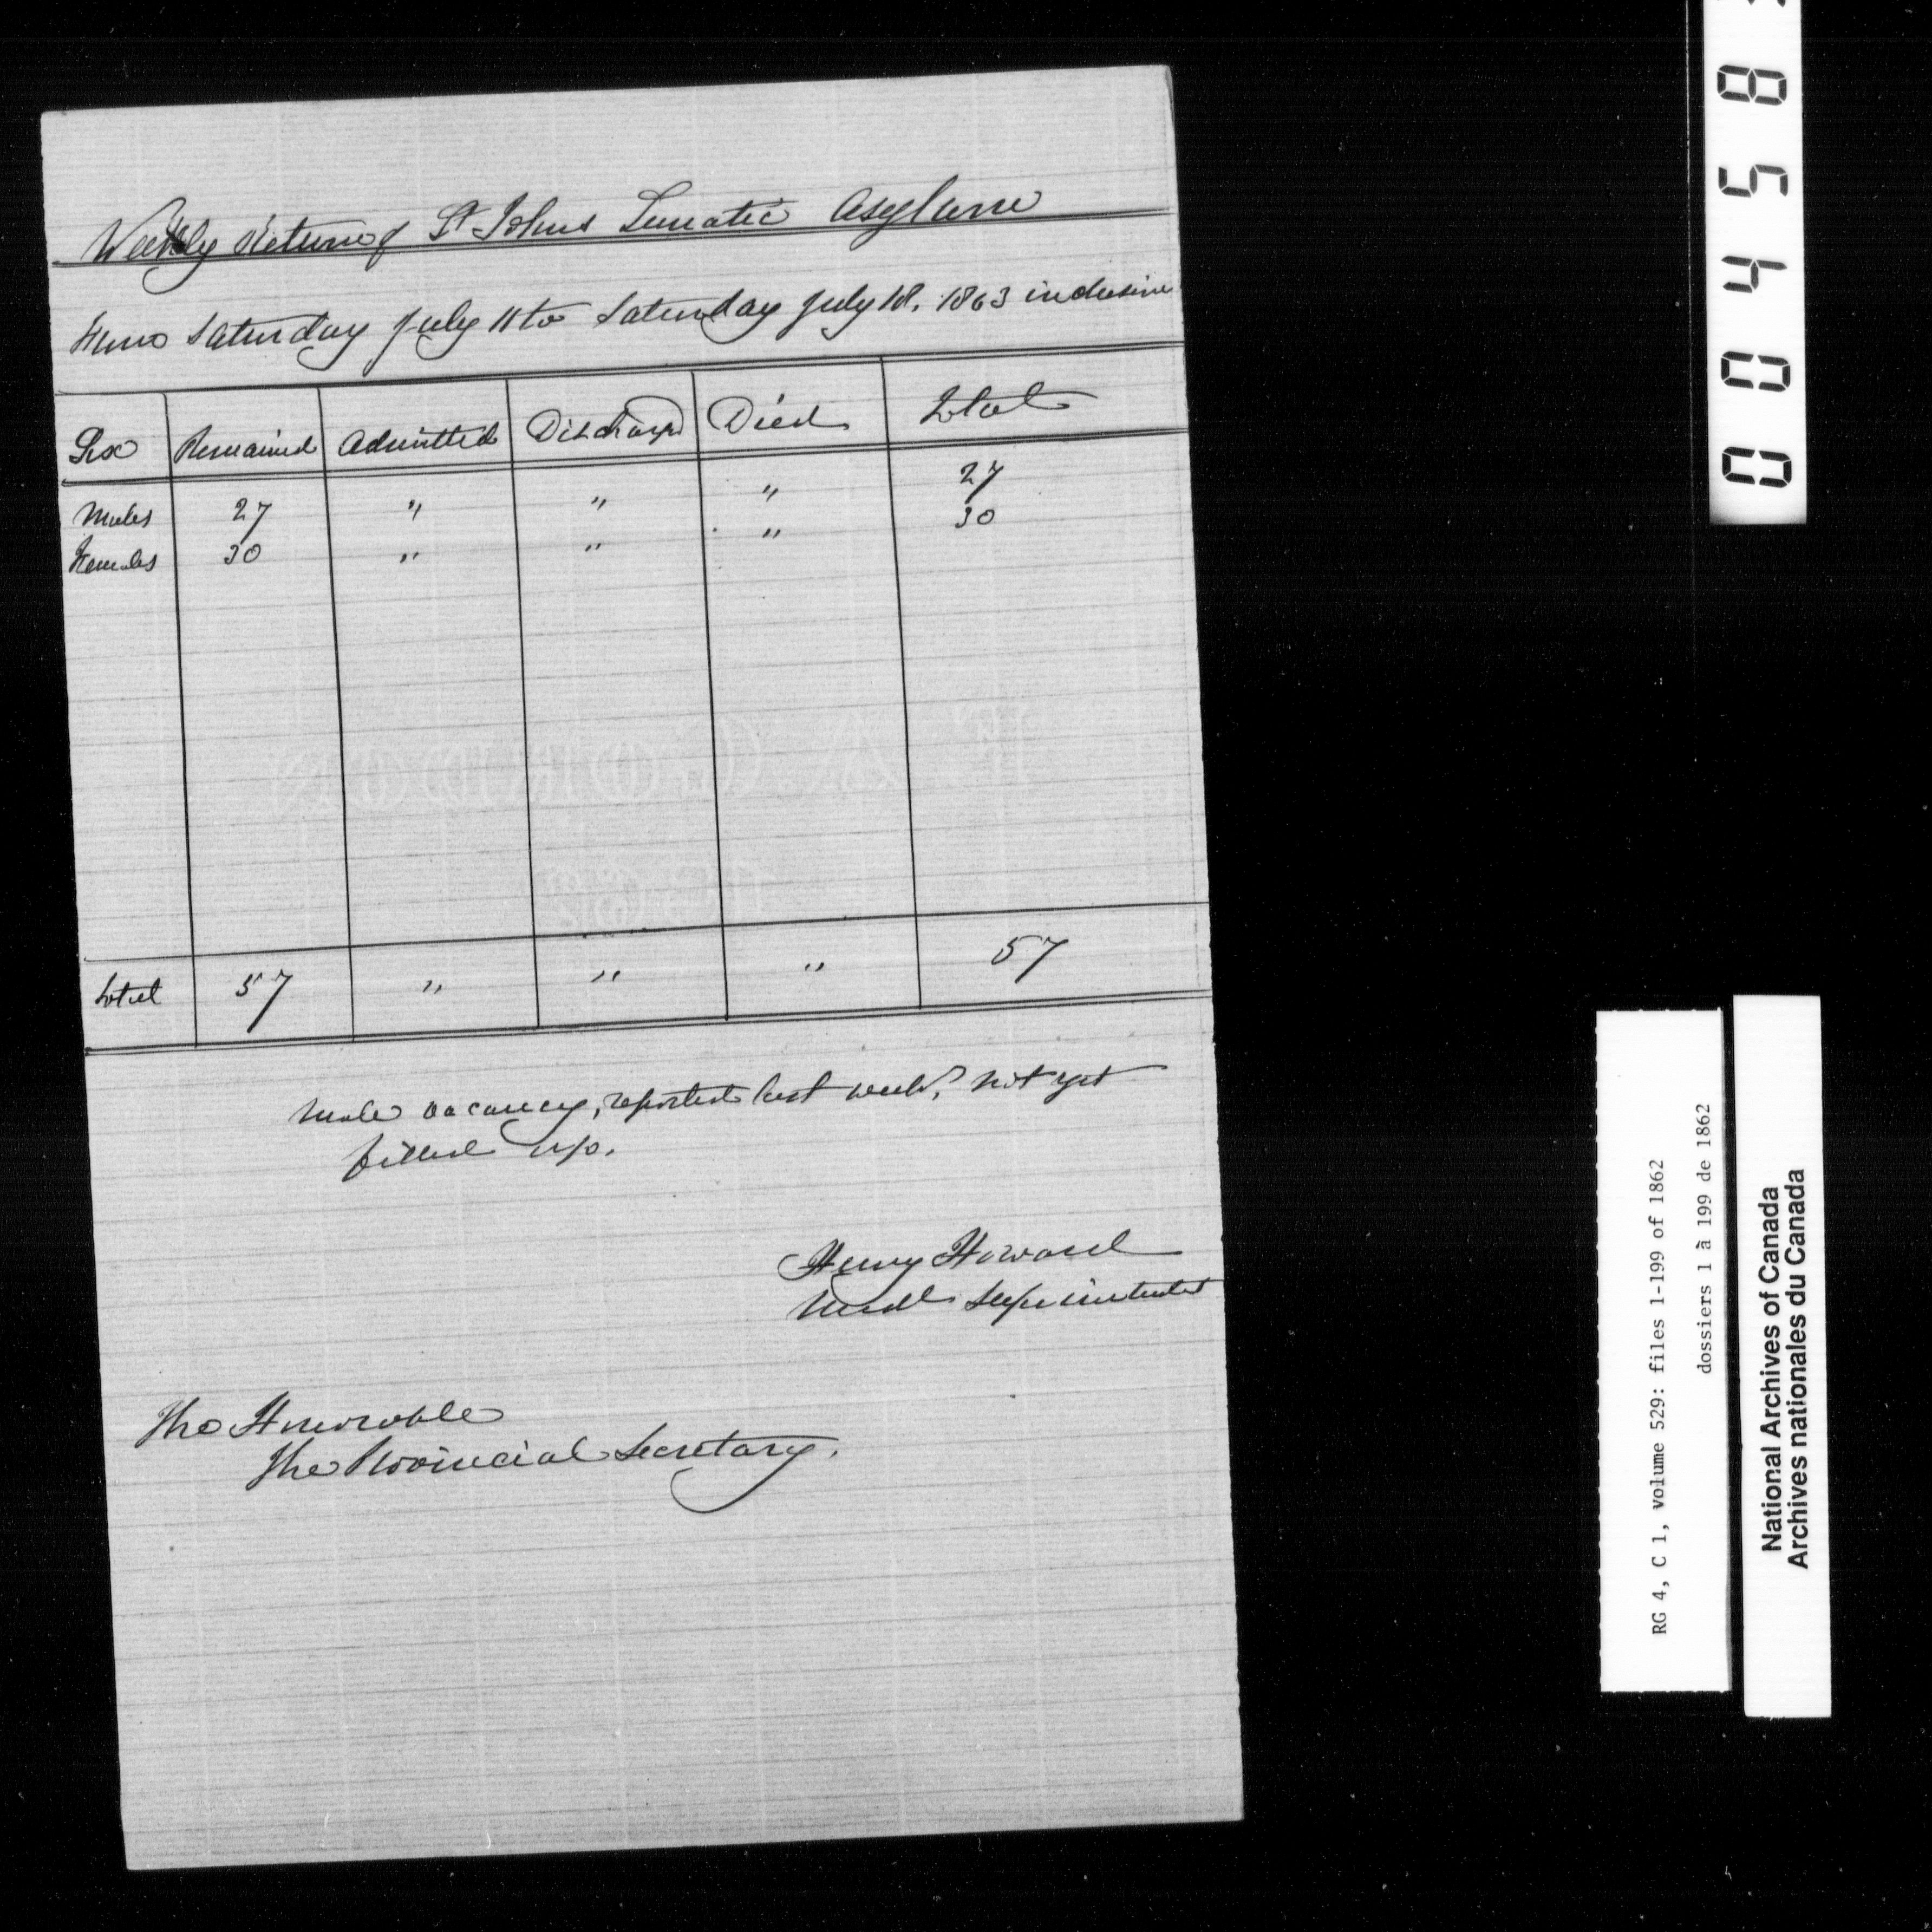 Weekly Return of St Johns Lunatic Asylum
From Saturday July 11 to Saturday July 18, 1863 inclusive
Sex Remained Admitted Discharged Died Total
Males 27 " " " 27
Females 30 " " " 30
Total 57 " " " 57
Male vacancy, reported last week, not yet
filled up.
Henry Howard
Medl Superintendent
The Honorable
The Provincial Secretary.
0 0 4 5 8
RG 4, C 1, volume 529: files 1-199 of 1862
dossiers 1 à 199 de 1862
National Archives of Canada
Archives nationales du Canada